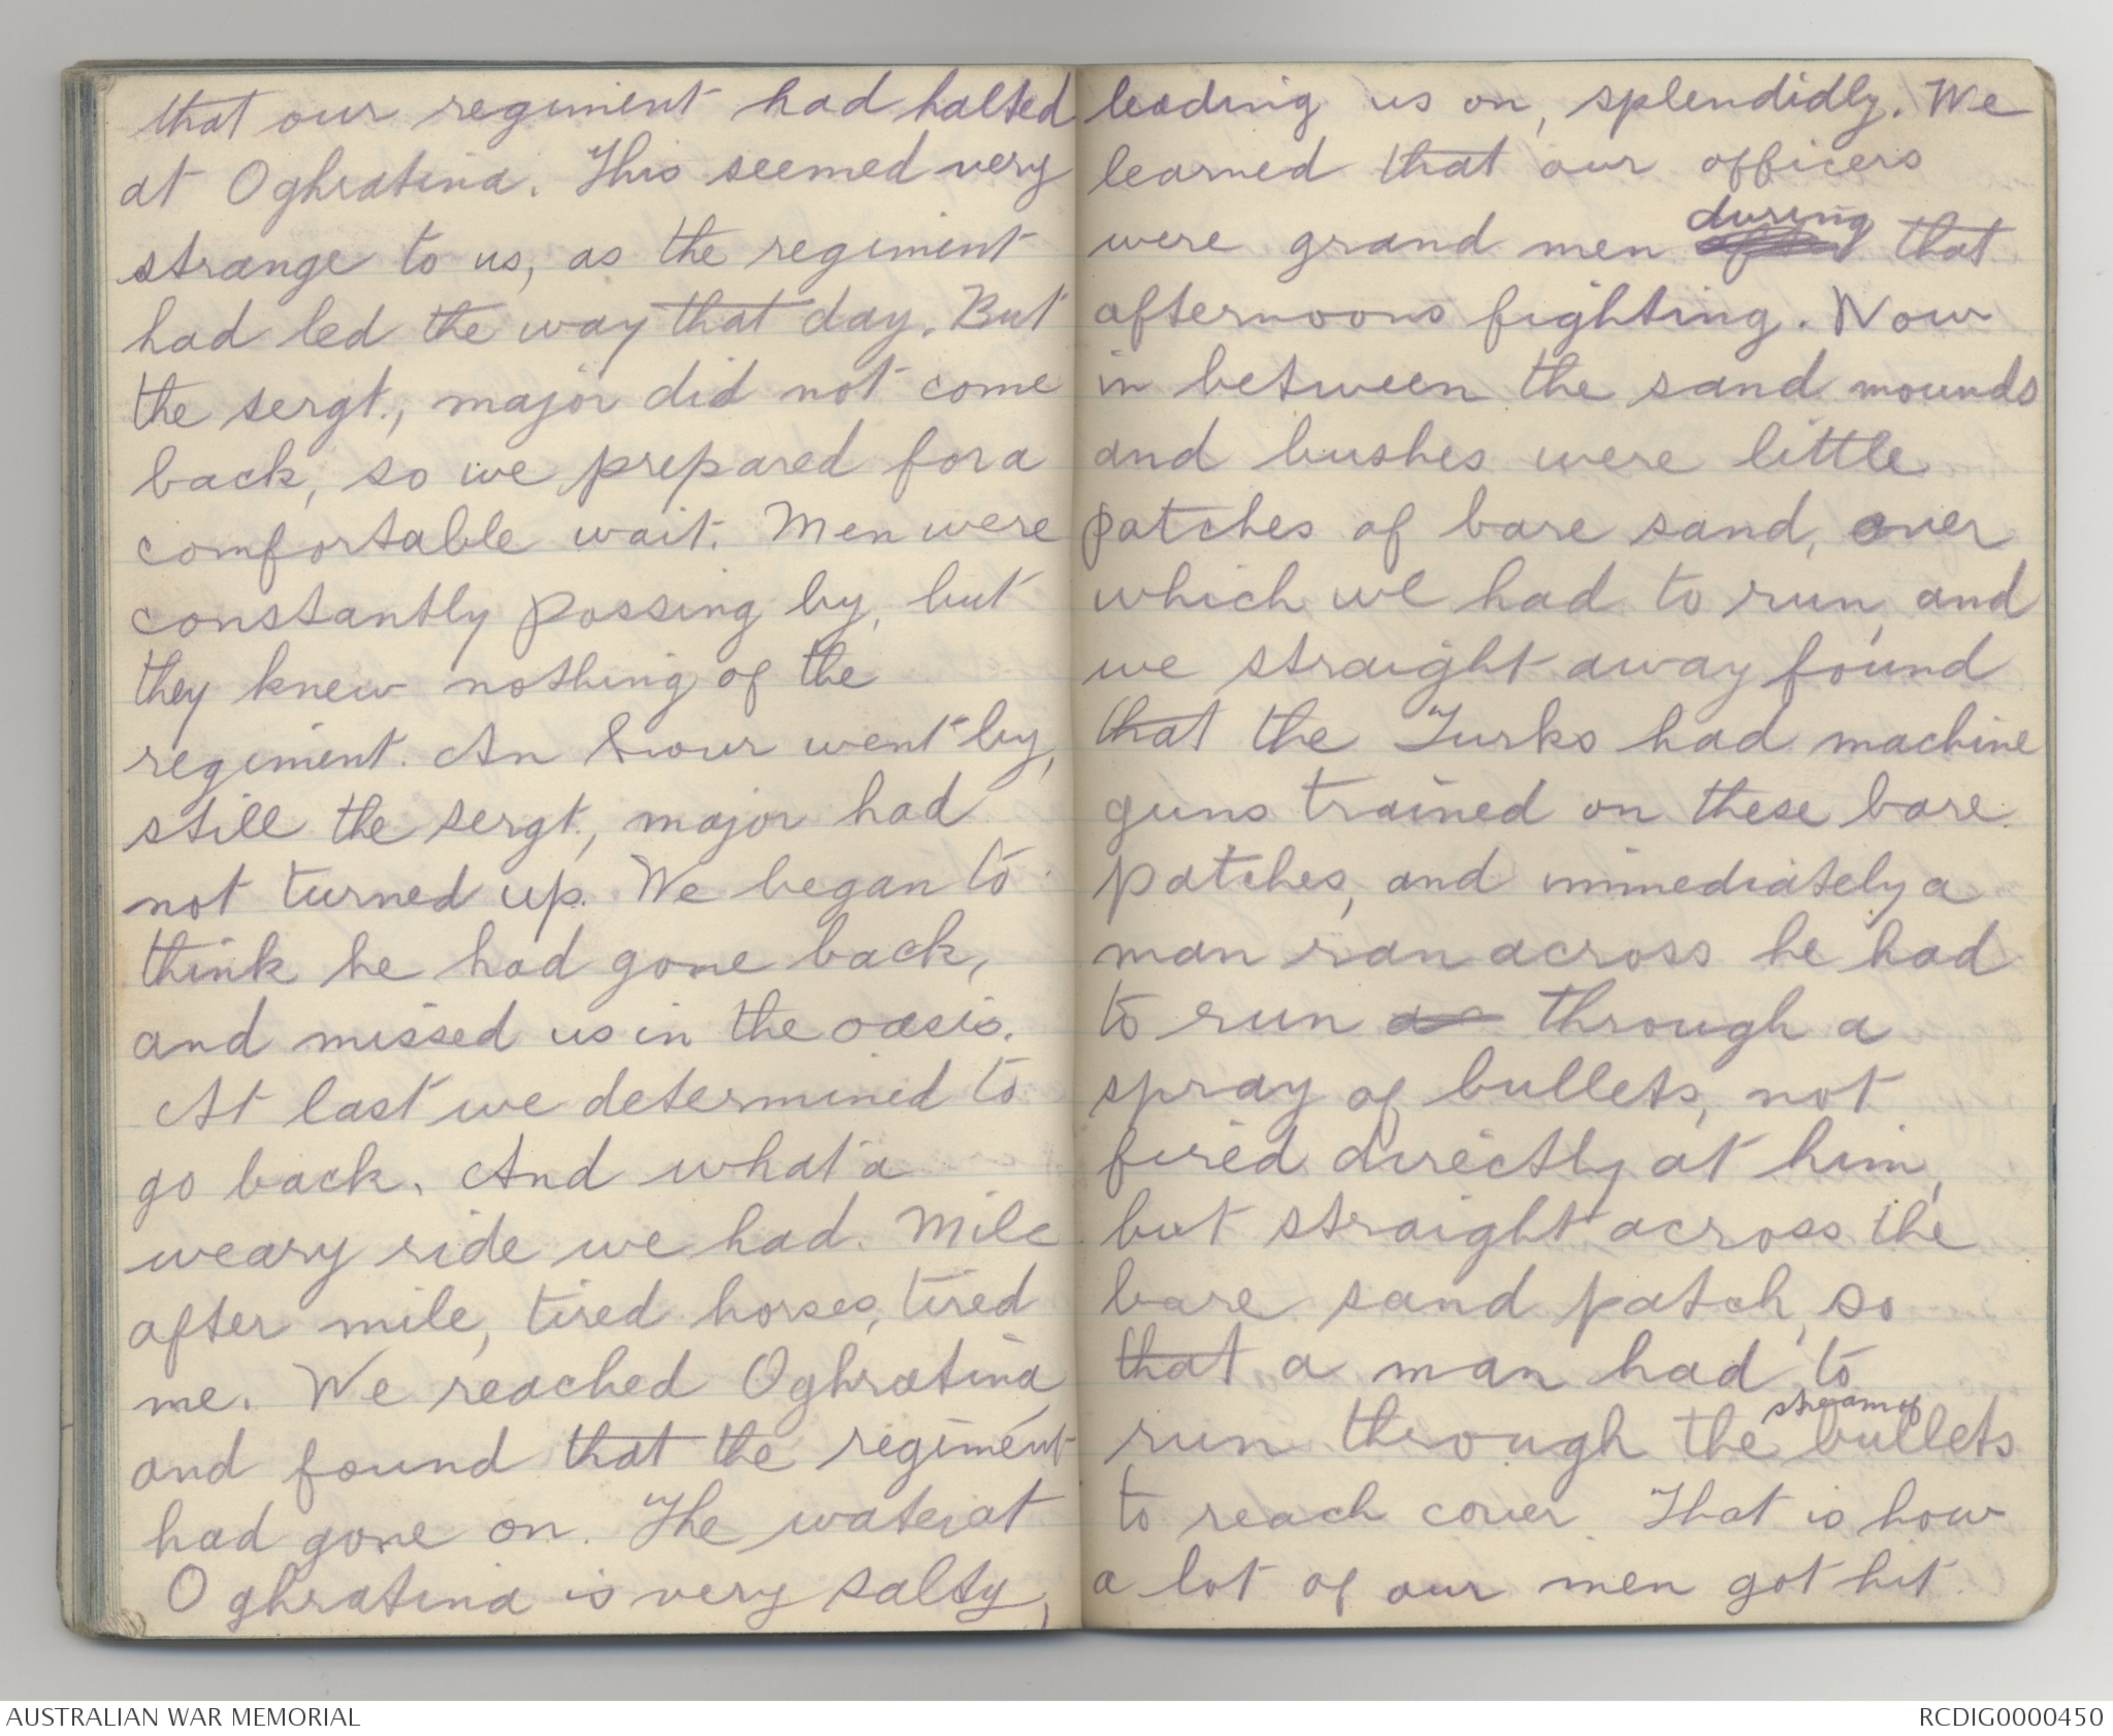 that our regiment had halted
at Oghratina. This seemed very
strange to us, as the regiment
had led the way that day. But
the sergt., major did not come
back, so we prepared for a
comfortable wait. Men were
constantly passing by, but
they knew nothing of the
regiment. An hour went by,
still the sergt., major had
not turned up. We began to
think he had gone back,
and missed us in the oasis.
At last we determined to
go back. And what a
weary ride we had. Mile
after mile, tired horses, tired
me. We reached Oghratina
and found that the regiment
had gone on. The water at
Oghratina is very salty,
leading us on, splendidly. We
learned that our officers
during
were grand men that
afternoons fighting. Now
in between the sand mounds
and bushes were little
patches of bare sand, over
which we had to run, and
we straight away found
that the Turks had machine
guns trained on these bare
patches, and immediately a
man ran across he had
to run through a
spray of bullets, not
fired directly at him,
but straight across the
bare sand patch, so
that a man had to
stream of
run through the bullets
to reach cover. That is how
a lot of our men got hit.
AUSTRALIAN WAR MEMORIAL
RCDIG0000450